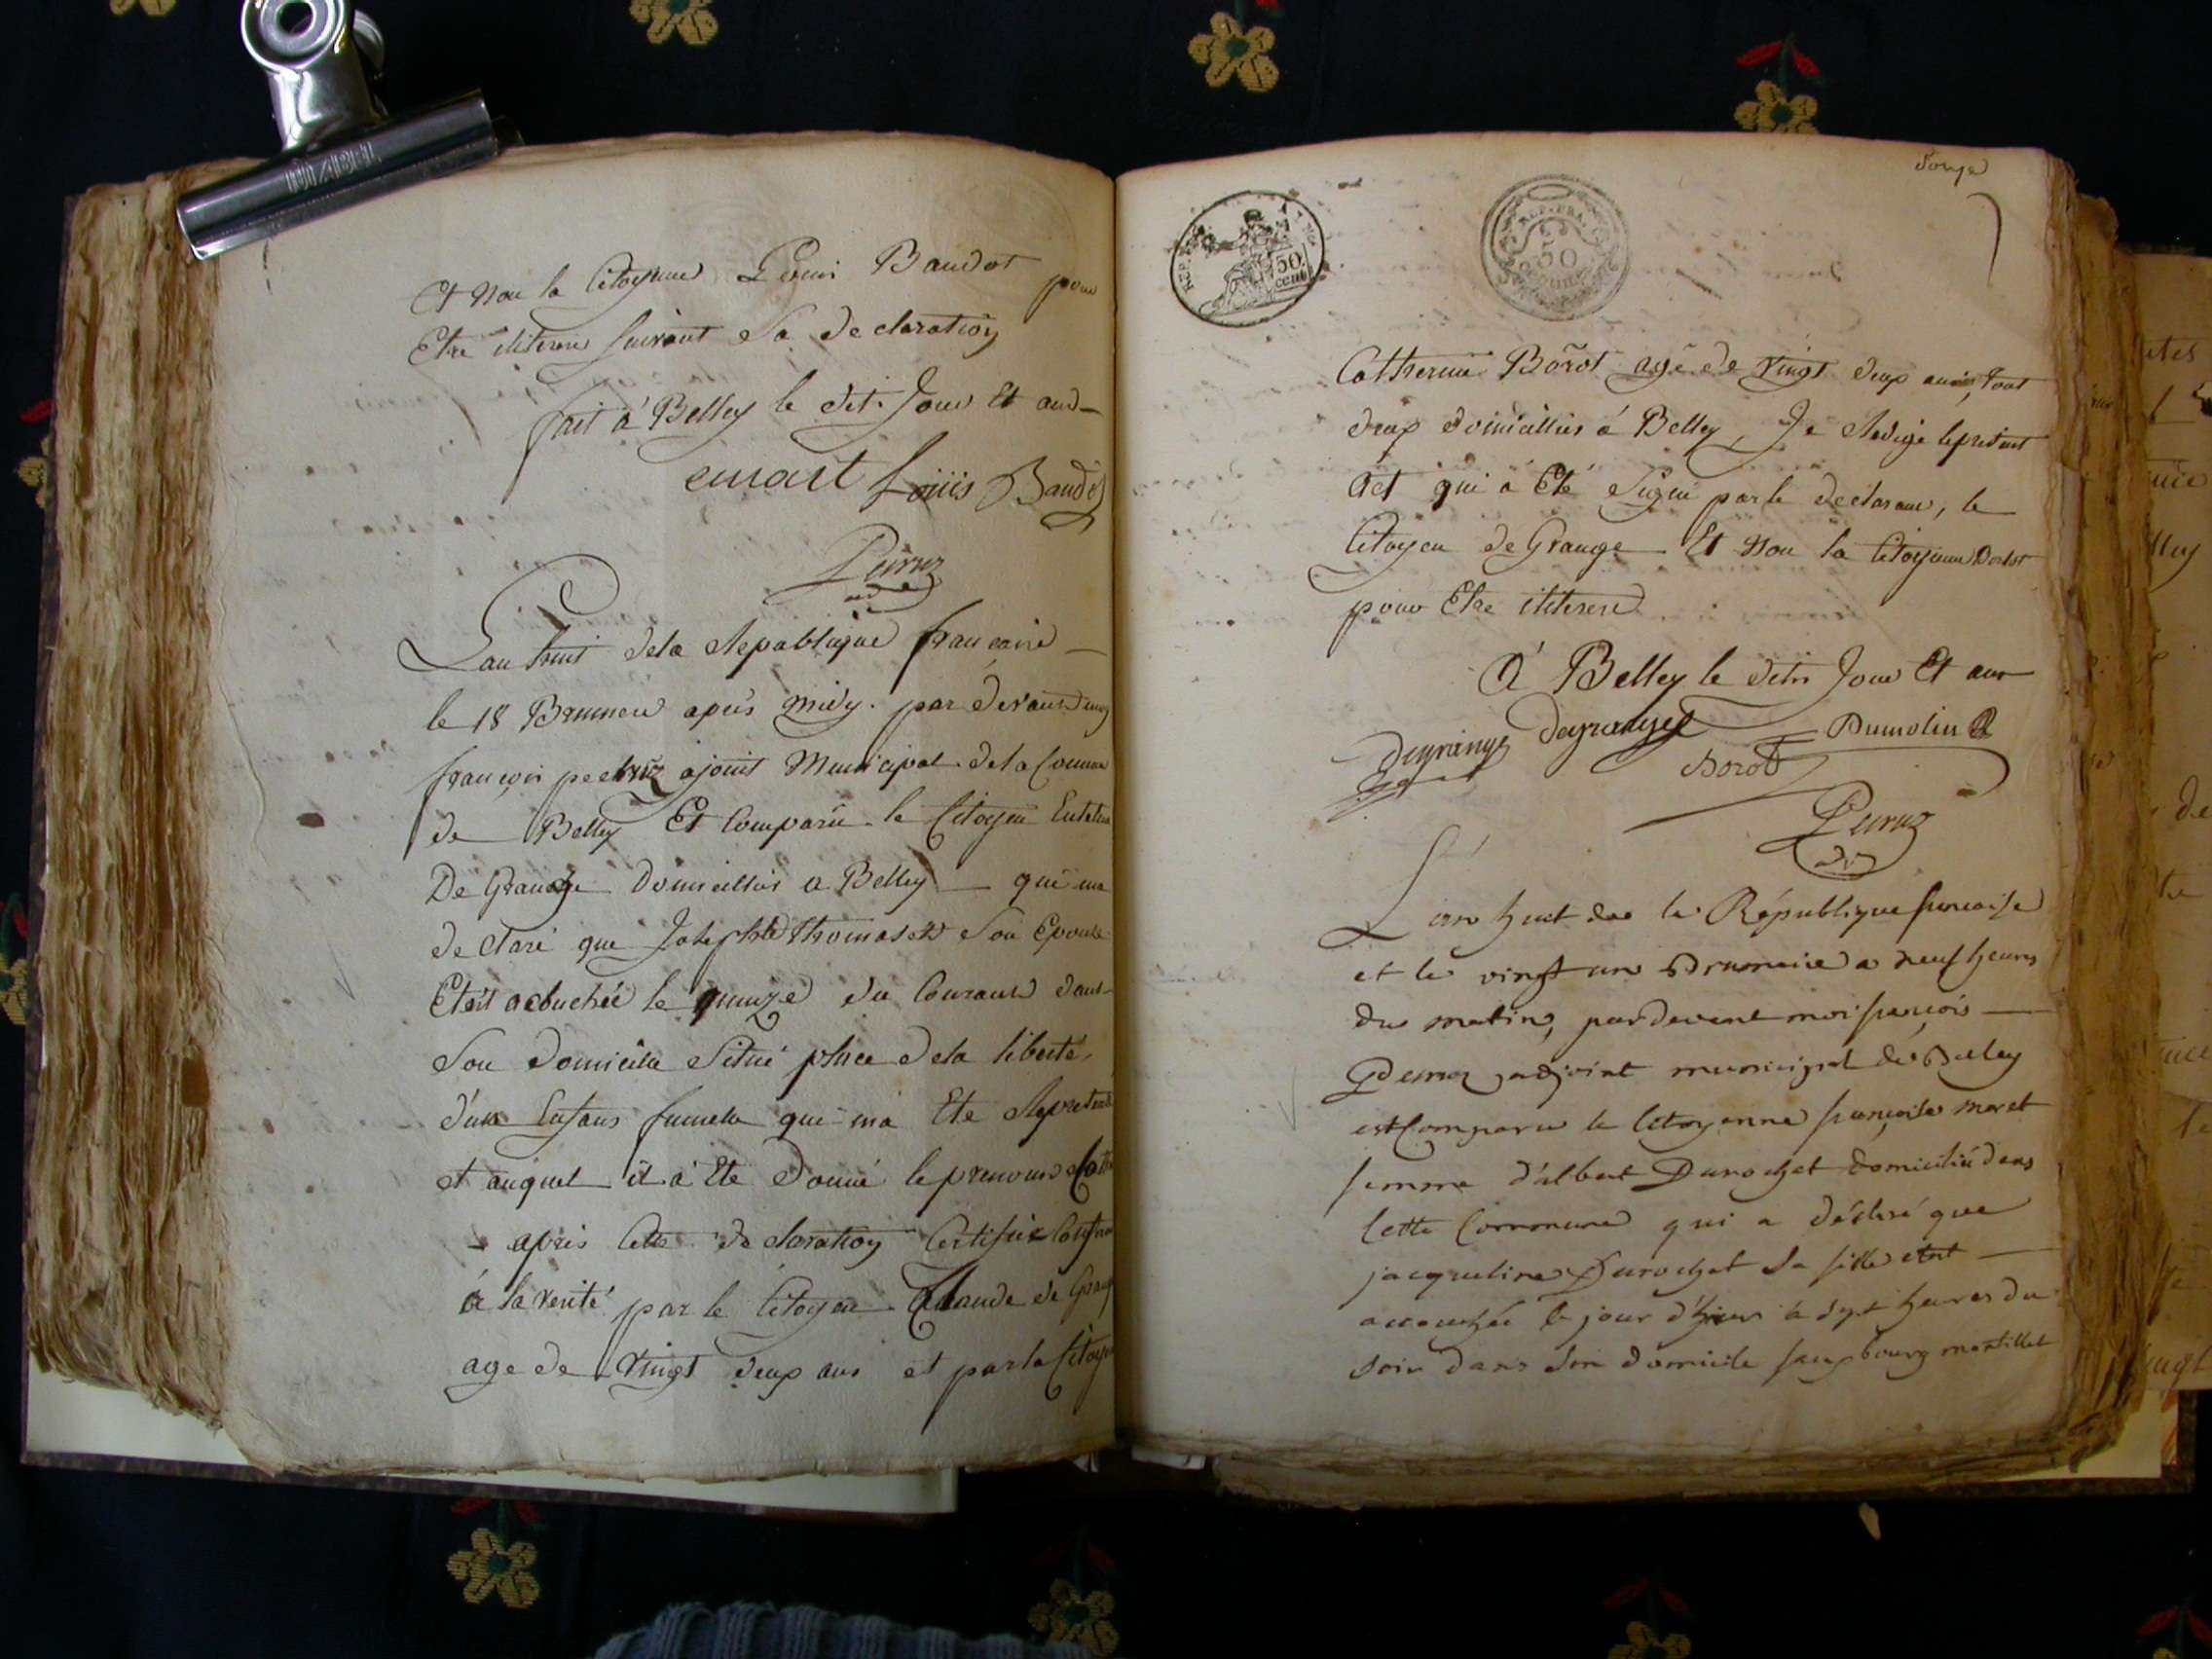 Et Non la Citoyenne Louis Baudot pour
Etre iliterée suivant Sa declaration
fait à Belley le dit Jour Et and
Louis Baudot
Peiruz
L'an huit dela Republique francaise
le 18 Brumere après midy par devant moy
françois peiruz ajoint Municipal dela Commune
de Belley Et Comparü le Citoyen
De Grange Domicillié a Belley qui ma
declaré que Josephte Thomasset Son Epouse
Etoit acouchée le quinze du Courant dans
Son domicille Situé place dela liberté
d'un Enfans fumelle qui ma Ete Represente
et auquel il à Ete donné le prenom de Catt
apres Cette declaration Certifiée Conforme
à la verité par le Citoyen Claude de Grange
age de vingt deux ans et par la Citoyenne
MABEL
REP. FRA.
50 cent
REP. FRA.
50
Catherine Borot agé de vingt deux annés, tout
deux domicilliés à Belley, Je Redigé le present
Act qui à Eté Signé par le declarant, le
Citoyen de Grange Et Non la Citoyenne Borot
pour Etre iliterere
A Belley le dit Jour Et an
Degrange Degrange Dumolin
Borot
Peiruz
L'an huit de la République francaise
et le vingt un Brumaire a neuf heures
du matin, pardevant moi françois
Peiruz adjoint municipal de Belley
est Comparu la Citoyenne françoise moret
femme d'albert Durochat domicilié dans
Cette Commune qui a déclaré que
jacqueline Durochat Sa fille etoit
accouchée le jour d'hier à sept heures du
soir dans son domicile fauxbourg